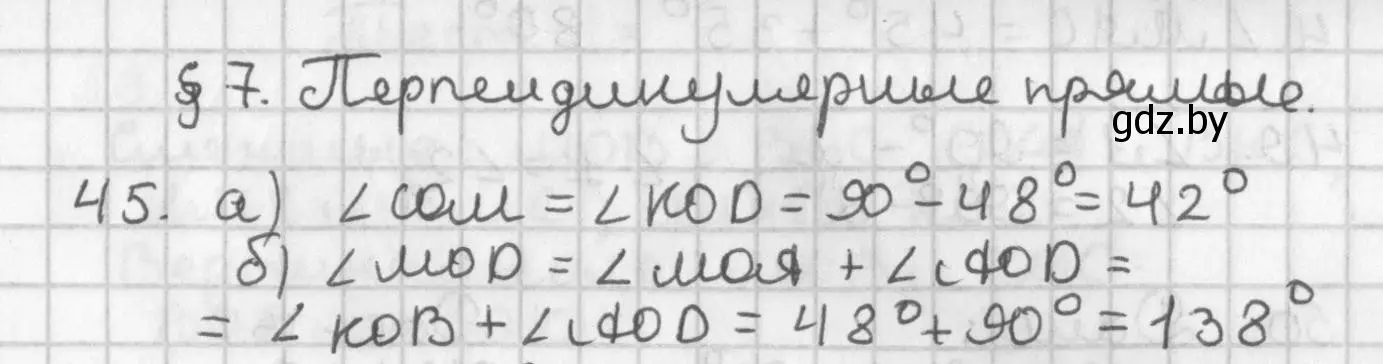 § 7. Перпендикулярные прямые.
gdz.by
45. а) ∠COM = ∠KOD = 90° - 48° = 42°
б) ∠MOD = ∠MOA + ∠AOD =
= ∠KOB + ∠AOD = 48° + 90° = 138°